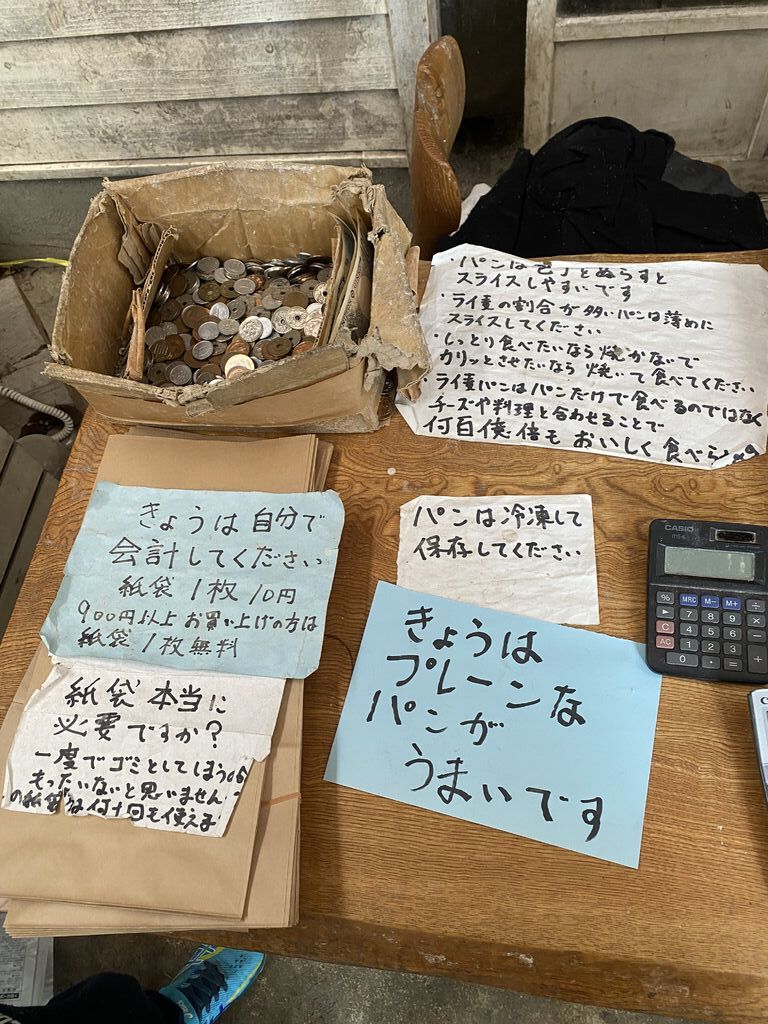 ・パンは包丁をぬらすと
スライスしやすいです
・ライ麦の割合が多いパンは薄めに
スライスしてください
・しっとり食べたいなら焼かないで
カリッとさせたいなら焼いて食べてください
・ライ麦パンはパンだけで食べるのではなく
チーズや料理と合わせることで
何百倍倍もおいしく食べら
きょうは自分で
会計してください
紙袋1枚10円
900円以上お買い上げの方は
紙袋1枚無料
紙袋本当に
必要ですか?
一度でゴミとしてしまうの
もったいないと思いません
の紙袋は何十回も使える
パンは冷凍して
保存してください
きょうは
プレーンな
パンが
うまいです
CASIO
% MRC M- M+ ÷
7 8 9 ×
C 4 5 6 -
AC 1 2 3 +
0 · =